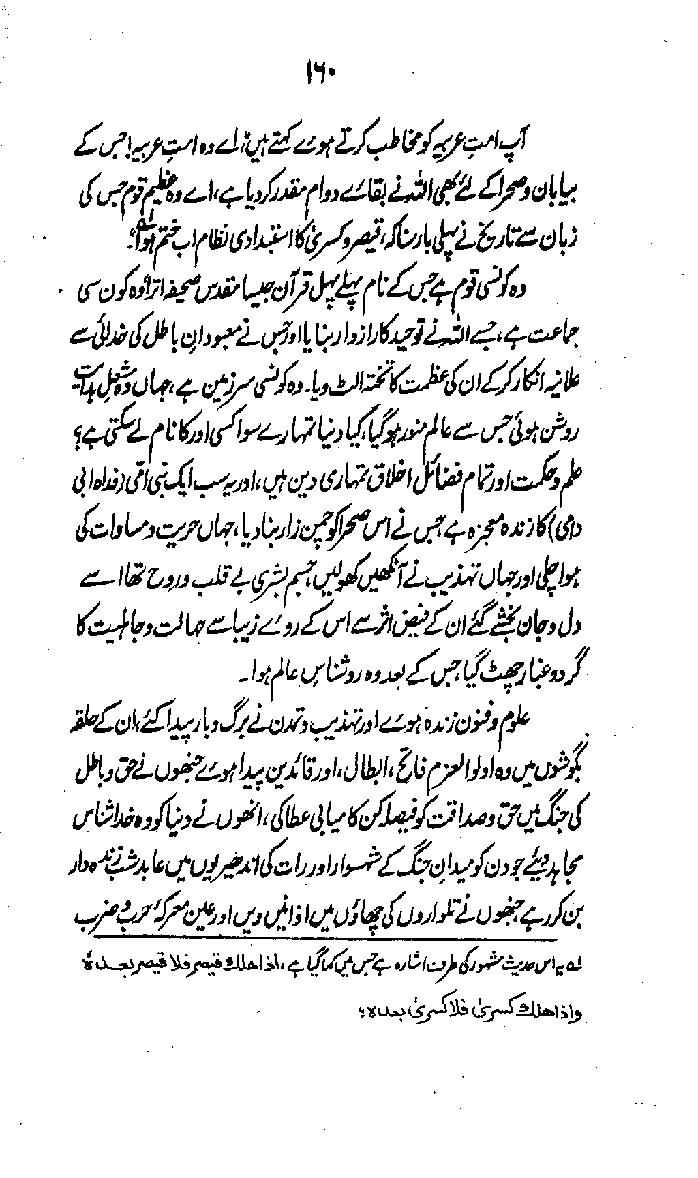 ۱۶۰
آپ امتِ عربیہ کو مخاطب کرتے ہوئے کہتے ہیں: اے وہ امتِ عربیہ! جس کے
بیابان و صحرا کے لئے بھی اللہ نے بقائے دوام مقدر کر دیا ہے، اے وہ عظیم قوم جس کی
زبان سے تاریخ نے پہلی بار سنا کہ، قیصر و کسریٰ کا استبدادی نظام اب ختم ہوا لہ،
وہ کونسی قوم ہے جس کے نام پہلے پہل قرآن جیسا مقدس صحیفہ اترا؟ وہ کون سی
جماعت ہے، جسے اللہ نے توحید کا رازدار بنایا اور جس نے معبودانِ باطل کی خدائی سے
علانیہ انکار کر کے ان کی عظمت کا تختہ الٹ دیا۔ وہ کونسی سرزمین ہے، جہاں وہ مشعلِ ہدایت
روشن ہوئی جس سے عالم منور ہو گیا، کیا دنیا تمہارے سوا کسی اور کا نام لے سکتی ہے؟
علم و حکمت اور تمام فضائل اخلاق تمہاری دین ہیں، اور یہ سب ایک نبی امی (فداہ ابی
دامی) کا زندہ معجزہ ہے جس نے اس صحرا کو چمن زار بنا دیا، جہاں حریت و مساوات کی
ہوا چلی اور جہاں تہذیب نے آنکھیں کھولیں، جسمِ بشری بے قلب و روح تھا اسے
دل و جان بخشے گئے ان کے فیضِ اثر سے اس کے روئے زیبا سے جہالت و جاہلیت کا
گرد و غبار چھٹ گیا، جس کے بعد وہ روشناسِ عالم ہوا۔
علوم و فنون زندہ ہوئے اور تہذیب و تمدن نے برگ و بار پیدا کئے، ان کے حلقہ
بگوشوں میں وہ اولوالعزم فاتح، ابطال، اور قائدین پیدا ہوئے جنھوں نے حق و باطل
کی جنگ میں حق و صداقت کو فیصلہ کن کامیابی عطا کی، انھوں نے دنیا کو وہ خدا شناس
مجاہد دیئے جو دن کو میدانِ جنگ کے شہسوار اور رات کی اندھیریوں میں عابدِ شب زندہ دار
بن کر رہے جنھوں نے تلواروں کی چھاؤں میں اذانیں دیں اور عین معرکۂ حرب و ضرب
لہ یہ اس حدیث مشہور کی طرف اشارہ ہے جس میں کہا گیا ہے، اذا هلك قیصر فلا قیصر بعدہ
واذا هلك کسریٰ فلا کسریٰ بعدہ،